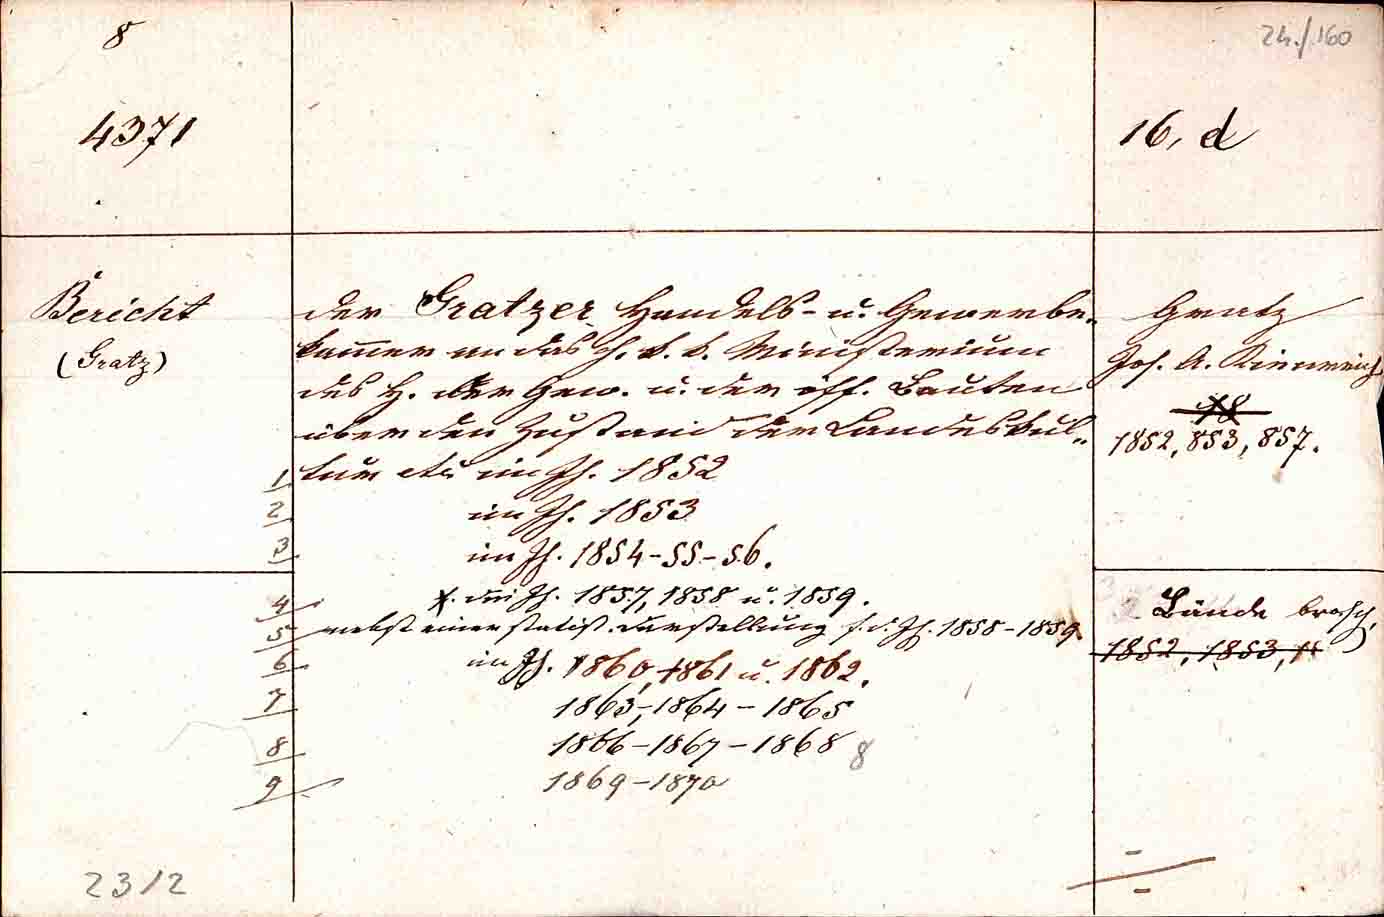 8
24./160
4371
16, d
Bericht
(Gratz)
der Gratzer Handels- u. Gewerbe-
kammer an das h. k. k. Ministerium
des H. der Gew. u. der öff. Bauten
über den Zustand der Landeskul-
1 tur etc im Jh. 1852
2 im Jh. 1853
3 im Jh. 1854-55-56.
4 Jh. 1857, 1858 u. 1859.
5 nebst einer statist. Darstellung f. d. Jh. 1858-1859
6 im Jh. 1860, 1861 u. 1862.
7 1863-, 1864 - 1865
8 1866-1867-1868 8
9 1869-1870
Gratz
Jos. A. Kienreich
1852, 853, 857.
Bände brosch.
1852, 1853,
23/2